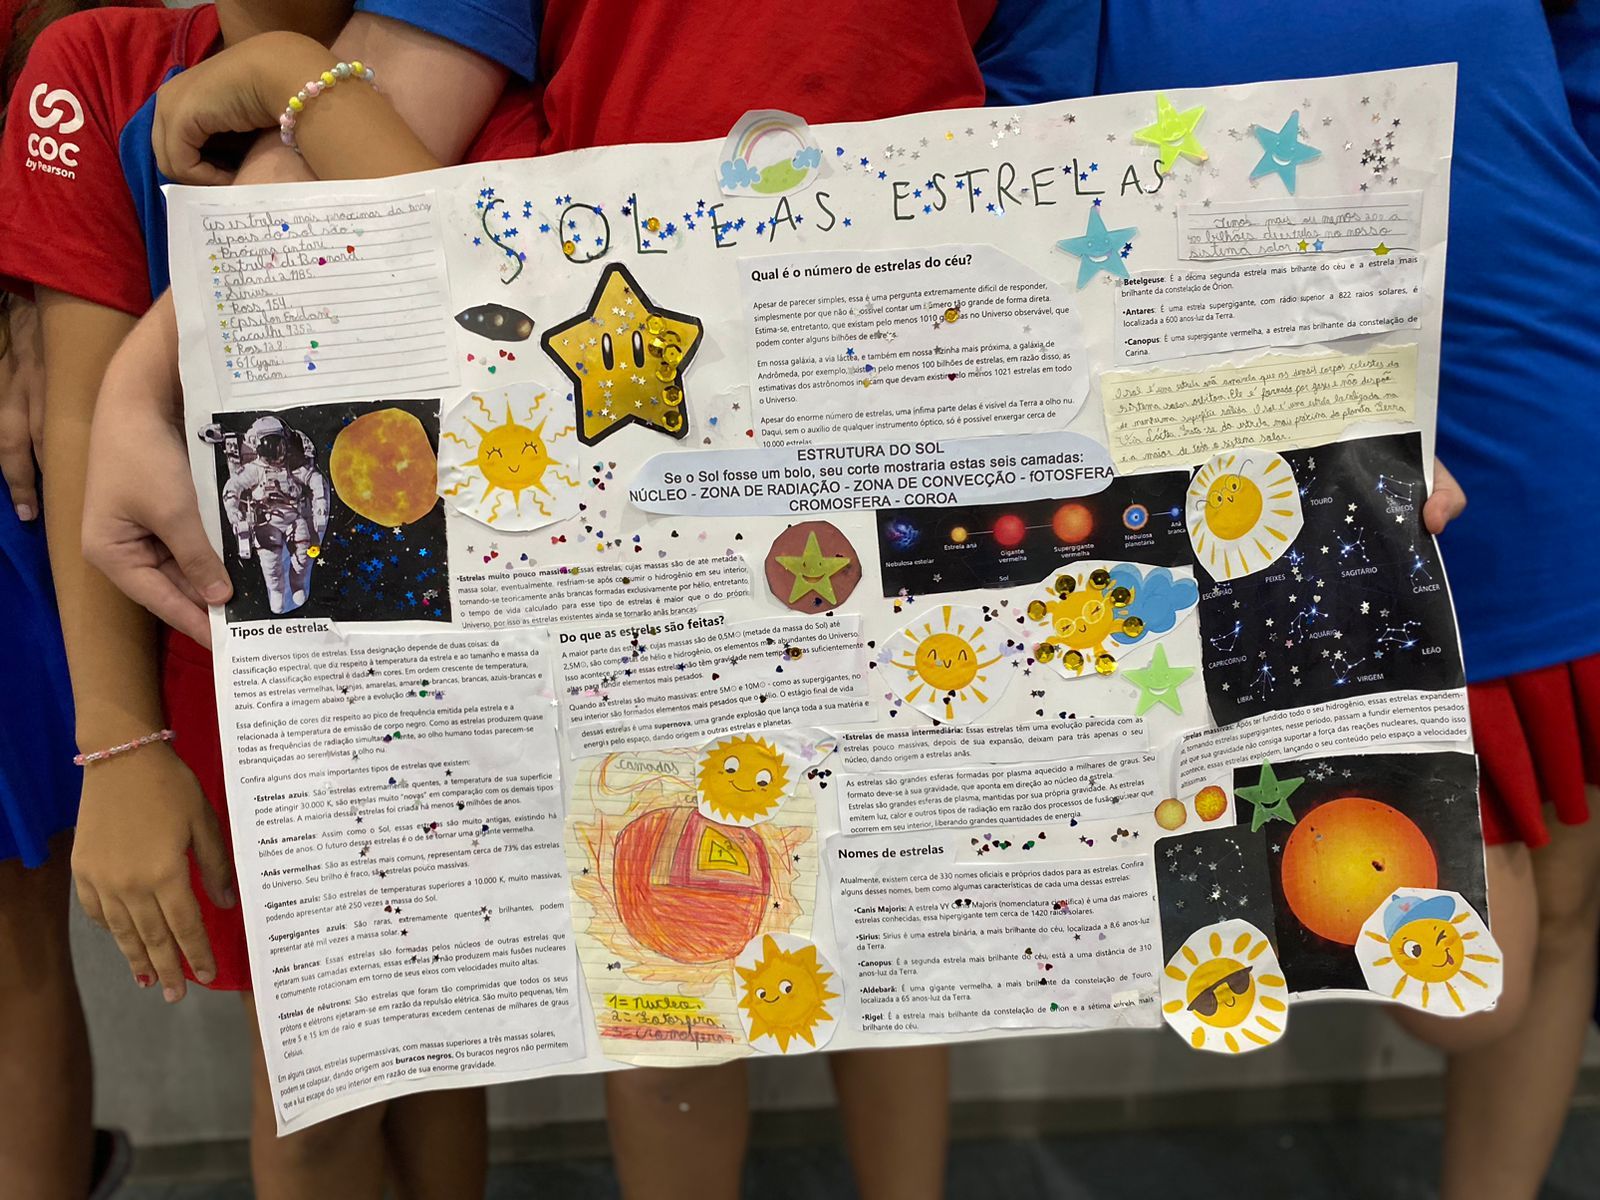 COC
by Pearson
SOL E AS ESTRELAS
As estrelas mais proximas da terra
depois do sol são:
Próxima centauri
Estrela de Barnard.
Lalande 21185.
Sirius.
Ross 154.
Epsilon Eridani
Lacaille 9352.
Ross 128.
61 Cygni.
Procion.
Qual é o número de estrelas do céu?
Apesar de parecer simples, essa é uma pergunta extremamente difícil de responder,
simplesmente por que não é possível contar um número tão grande de forma direta.
Estima-se, entretanto, que existam pelo menos 1010 galáxias no Universo observável, que
podem conter alguns bilhões de estrelas.
Em nossa galáxia, a via láctea, e também em nossa vizinha mais próxima, a galáxia de
Andrômeda, por exemplo, existem pelo menos 100 bilhões de estrelas, em razão disso, as
estimativas dos astrônomos indicam que devam existir pelo menos 1021 estrelas em todo
o Universo.
Apesar do enorme número de estrelas, uma ínfima parte delas é visível da Terra a olho nu.
Daqui, sem o auxílio de qualquer instrumento óptico, só é possível enxergar cerca de
10.000 estrelas
Temos mais ou menos 200 a
400 bilhões de estrelas no nosso
sistema solar
Betelgeuse: É a décima segunda estrela mais brilhante do céu e a estrela mais
brilhante da constelação de Órion.
•Antares: É uma estrela supergigante, com rádio superior a 822 raios solares, é
localizada a 600 anos-luz da Terra.
•Canopus: É supergigante vermelha, a estrela mas brilhante da constelação de
Carina.
O sol é uma estrela anã amarela que os demais corpos celestes do
sistema solar orbitam. Ele é formado por gases e não dispõe
de nenhuma superfície sólida. O sol é uma estrela localizada na
Via Láctea. Trata-se da estrela mais próxima do planeta Terra
e a maior de todo o sistema solar.
ESTRUTURA DO SOL
Se o Sol fosse um bolo, seu corte mostraria estas seis camadas:
NÚCLEO - ZONA DE RADIAÇÃO - ZONA DE CONVECÇÃO - fOTOSFERA
CROMOSFERA - COROA
Nebulosa estelar
Estrela anã
Gigante
vermelha
Supergigante
vermelha
Nebulosa
planetária
Anã
branca
Sol
TOURO
GÊMEOS
PEIXES
SAGITÁRIO
CÂNCER
ESCORPIÃO
AQUÁRIO
LEÃO
CAPRICORNIO
VIRGEM
LIBRA
•Estrelas muito pouco massivas: Essas estrelas, cujas massas são de até metade
massa solar, eventualmente, resfriam-se após consumir o hidrogênio em seu interior,
tornando-se teoricamente anãs brancas formadas exclusivamente por hélio, entretanto,
o tempo de vida calculado para esse tipo de estrelas é maior que o do própri
Universo, por isso as estrelas existentes ainda se tornarão anãs brancas
Tipos de estrelas
Existem diversos tipos de estrelas. Essa designação depende de duas coisas: da
classificação espectral, que diz respeito à temperatura da estrela e ao tamanho e massa da
estrela. A classificação espectral é dada em cores. Em ordem crescente de temperatura,
temos as estrelas vermelhas, laranjas, amarelas, amarelas-brancas, brancas, azuis-brancas e
azuis. Confira a imagem abaixo sobre a evolução das estrelas:
Essa definição de cores diz respeito ao pico de frequência emitida pela estrela e a
relacionada à temperatura de emissão de corpo negro. Como as estrelas produzem quase
todas as frequências de radiação simultaneamente, ao olho humano todas parecem-se
esbranquiçadas ao serem vistas a olho nu.
Confira alguns dos mais importantes tipos de estrelas que existem:
•Estrelas azuis: São estrelas extremamente quentes, a temperatura de sua superfície
pode atingir 30.000 K, são estrelas muito "novas" em comparação com os demais tipos
de estrelas. A maioria dessas estrelas foi criada há menos 40 milhões de anos.
•Anãs amarelas: Assim como o Sol, essas estrelas são muito antigas, existindo há
bilhões de anos. O futuro dessas estrelas é o de se tornar uma gigante vermelha.
•Anãs vermelhas: São as estrelas mais comuns, representam cerca de 73% das estrelas
do Universo. Seu brilho é fraco, são estrelas pouco massivas.
•Gigantes azuis: São estrelas de temperaturas superiores a 10.000 K, muito massivas,
podendo apresentar até 250 vezes a massa do Sol.
•Supergigantes azuis: São raras, extremamente quentes e brilhantes, podem
apresentar até mil vezes a massa solar.
•Anãs brancas: Essas estrelas são formadas pelos núcleos de outras estrelas que
ejetaram suas camadas externas, essas estrelas já não produzem mais fusões nucleares
e comumente rotacionam em torno de seus eixos com velocidades muito altas.
•Estrelas de nêutrons: São estrelas que foram tão comprimidas que todos os seus
prótons e elétrons ejetaram-se em razão da repulsão elétrica. São muito pequenas, têm
entre 5 e 15 km de raio e suas temperaturas excedem centenas de milhares de graus
Celsius.
Em alguns casos, estrelas supermassivas, com massas superiores a três massas solares,
podem se colapsar, dando origem aos buracos negros. Os buracos negros não permitem
que a luz escape do seu interior em razão de sua enorme gravidade.
Do que as estrelas são feitas?
A maior parte das estrelas, cujas massas são de 0,5M⊙ (metade da massa do Sol) até
2,5M⊙, são compostas de hélio e hidrogênio, os elementos mais abundantes do Universo.
Isso acontece porque essas estrelas não têm gravidade nem temperaturas suficientemente
altas para fundir elementos mais pesados.
Quando as estrelas são muito massivas: entre 5M⊙ e 10M⊙ - como as supergigantes, no
seu interior são formados elementos mais pesados que o hélio. O estágio final de vida
dessas estrelas é uma supernova, uma grande explosão que lança toda a sua matéria e
energia pelo espaço, dando origem a outras estrelas e planetas.
camadas
1= Nucleo.
2= Fotosfera.
3= cromosfera
•Estrelas de massa intermediária: Essas estrelas têm uma evolução parecida com as
estrelas pouco massivas, depois de sua expansão, deixam para trás apenas o seu
núcleo, dando origem a estrelas anãs.
As estrelas são grandes esferas formadas por plasma aquecido a milhares de graus. Seu
formato deve-se à sua gravidade, que aponta em direção ao núcleo da estrela.
Estrelas são grandes esferas de plasma, mantidas por sua própria gravidade. As estrelas
emitem luz, calor e outros tipos de radiação em razão dos processos de fusão nuclear que
ocorrem em seu interior, liberando grandes quantidades de energia.
massivas: Após ter fundido todo o seu hidrogênio, essas estrelas expandem-
tornando estrelas supergigantes, nesse período, passam a fundir elementos pesados
até que sua gravidade não consiga suportar a força das reações nucleares, quando isso
acontece, essas estrelas explodem, lançando o seu conteúdo pelo espaço a velocidades
altíssimas
Nomes de estrelas
Atualmente, existem cerca de 330 nomes oficiais e próprios dados para as estrelas. Confira
alguns desses nomes, bem como algumas características de cada uma dessas estrelas:
•Canis Majoris: A estrela VY Canis Majoris (nomenclatura científica) é uma das maiores
estrelas conhecidas, essa hipergigante tem cerca de 1420 raios solares.
•Sirius: Sirius é uma estrela binária, a mais brilhante do céu, localizada a 8,6 anos-luz
da Terra.
•Canopus: É a segunda estrela mais brilhante do céu, está a uma distância de 310
anos-luz da Terra.
•Aldebarã: É uma gigante vermelha, a mais brilhante da constelação de Touro,
localizada a 65 anos-luz da Terra.
•Rigel: É a estrela mais brilhante da constelação de Órion e a sétima estrela mais
brilhante do céu.